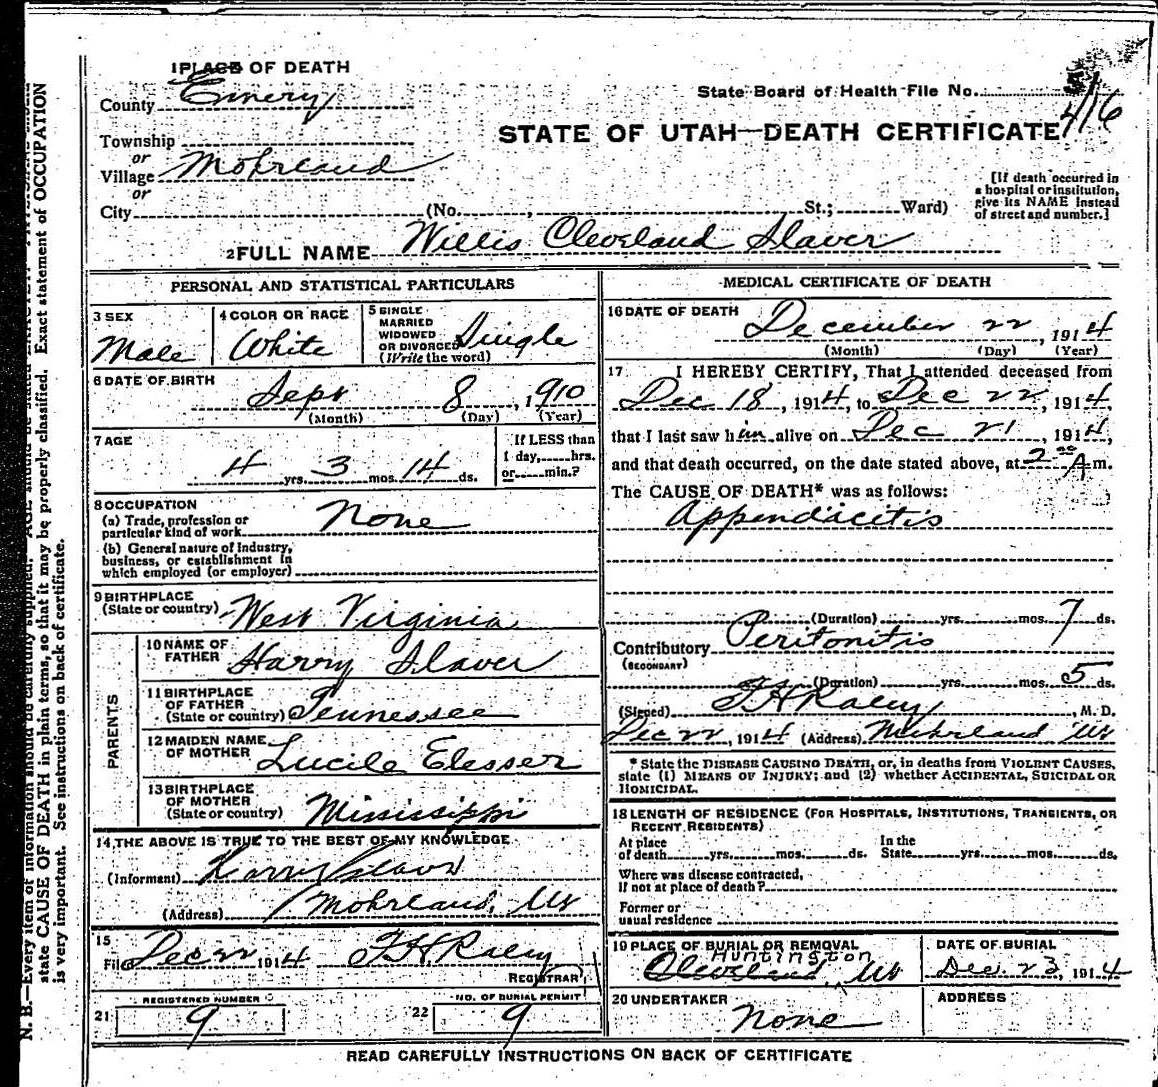 1 PLACE OF DEATH
County Emery
State Board of Health File No.
416
STATE OF UTAH—DEATH CERTIFICATE
Township
or
Village Mohrland
or
City (No. , St.; Ward)
[If death occurred in
a hospital or institution,
give its NAME instead
of street and number.]
2 FULL NAME Willis Cleveland Slaver
PERSONAL AND STATISTICAL PARTICULARS
3 SEX
Male
4 COLOR OR RACE
White
5 SINGLE
MARRIED
WIDOWED
OR DIVORCED
(Write the word)
Single
6 DATE OF BIRTH
Sept 8, 1910
(Month) (Day) (Year)
7 AGE
4 yrs. 3 mos. 14 ds.
If LESS than
1 day, hrs.
or min.?
8 OCCUPATION
(a) Trade, profession or
particular kind of work None
(b) General nature of industry,
business, or establishment in
which employed (or employer)
9 BIRTHPLACE
(State or country) West Virginia
PARENTS
10 NAME OF
FATHER Harry Slaver
11 BIRTHPLACE
OF FATHER
(State or country) Tennessee
12 MAIDEN NAME
OF MOTHER Lucile Elesser
13 BIRTHPLACE
OF MOTHER
(State or country) Mississippi
14 THE ABOVE IS TRUE TO THE BEST OF MY KNOWLEDGE
(Informant) Harry Slaver
(Address) Mohrland, Ut
15
Filed Dec 22 1914 F H Raley
REGISTRAR
REGISTERED NUMBER
21 9
NO. OF BURIAL PERMIT
22 9
MEDICAL CERTIFICATE OF DEATH
16 DATE OF DEATH
December 22, 1914
(Month) (Day) (Year)
17 I HEREBY CERTIFY, That I attended deceased from
Dec 18, 1914, to Dec 22, 1914,
that I last saw him alive on Dec 21, 1914,
and that death occurred, on the date stated above, at 2 00 A m.
The CAUSE OF DEATH* was as follows:
Appendicitis
(Duration) yrs. mos. 7 ds.
Contributory Peritonitis
(SECONDARY)
(Duration) yrs. mos. 5 ds.
(Signed) F H Raley, M. D.
Dec 22, 1914 (Address) Mohrland Ut
* State the DISEASE CAUSING DEATH, or, in deaths from VIOLENT CAUSES,
state (1) MEANS OF INJURY; and (2) whether ACCIDENTAL, SUICIDAL OR
HOMICIDAL.
18 LENGTH OF RESIDENCE (FOR HOSPITALS, INSTITUTIONS, TRANSIENTS, OR
RECENT RESIDENTS)
At place In the
of death yrs. mos. ds. State yrs. mos. ds.
Where was disease contracted,
if not at place of death?
Former or
usual residence
19 PLACE OF BURIAL OR REMOVAL
Huntington
Cleveland Ut
DATE OF BURIAL
Dec. 23, 1914
20 UNDERTAKER
None
ADDRESS
READ CAREFULLY INSTRUCTIONS ON BACK OF CERTIFICATE
N. B.—Every item of information should be carefully supplied. AGE should be stated EXACTLY.
state CAUSE OF DEATH in plain terms, so that it may be properly classified. Exact statement of OCCUPATION
is very important. See instructions on back of certificate.